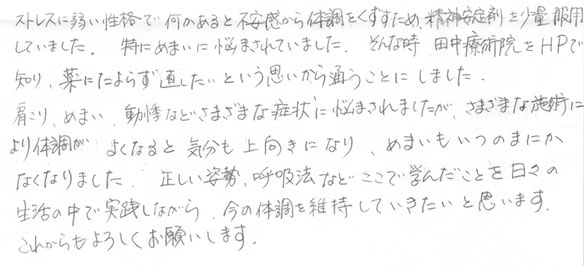 ストレスに弱い性格で何かあると不安感から体調をくずすため、精神安定剤を少量服用
していました。 特にめまいに悩まされていました。そんな時 田中療術院をHPで
知り、薬にたよらず直したいという思いから通うことにしました。
肩こり、めまい、動悸などさまざまな症状に悩まされましたが、さまざまな施術に
より体調が よくなると 気分も上向きになり、めまいもいつのまにか
なくなりました。 正しい姿勢、呼吸法などここで学んだことを日々の
生活の中で実践しながら、今の体調を維持していきたいと思います。
これからもよろしくお願いします。